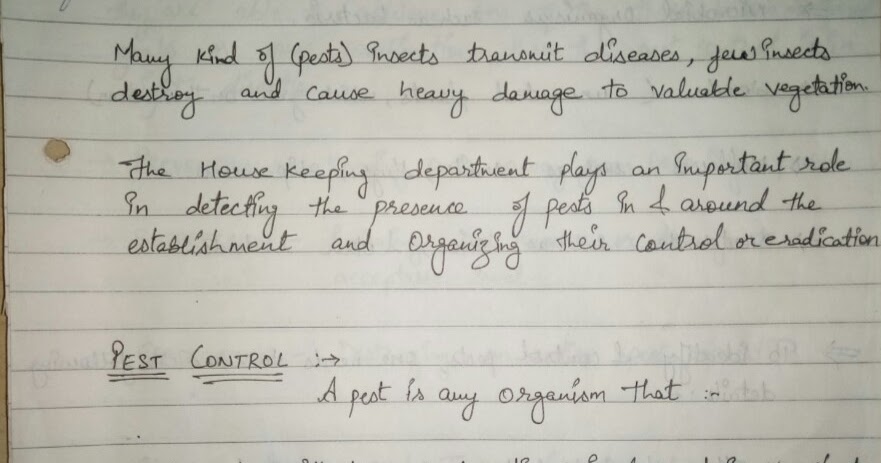 Many kind of (pests) insects transmit diseases, few insects
destroy and cause heavy damage to valuable vegetation.
The House keeping department plays an important role
in detecting the presence of pests in & around the
establishment and Organizing their control or eradication
PEST CONTROL :→
A pest is any organism that :-